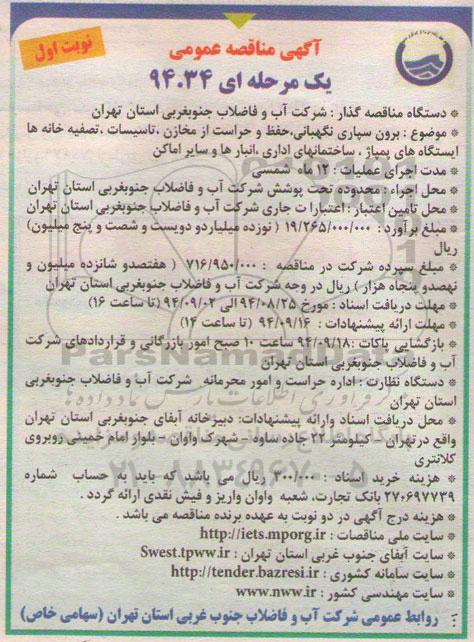 آگهی مناقصه عمومی
نوبت اول
یک مرحله ای ۹۴.۳۴
* دستگاه مناقصه گذار : شرکت آب و فاضلاب جنوبغربی استان تهران
* موضوع : برون سپاری نگهبانی،حفظ و حراست از مخازن ،تاسیسات ،تصفیه خانه ها
ایستگاه های پمپاژ ، ساختمانهای اداری ،انبار ها و سایر اماکن
* مدت اجرای عملیات : ۱۲ ماه شمسی
* محل اجراء : محدوده تحت پوشش شرکت آب و فاضلاب جنوبغربی استان تهران
* محل تامین اعتبار : اعتبارات جاری شرکت آب و فاضلاب جنوبغربی استان تهران
* مبلغ برآورد : ۱۹/۲۶۵/۰۰۰/۰۰۰ ( نوزده میلیاردو دویست و شصت و پنج میلیون)
ریال
* مبلغ سپرده شرکت در مناقصه : ۷۱۶/۹۵۰/۰۰۰ ( هفتصدو شانزده میلیون و
نهصدو پنجاه هزار ) ریال در وجه شرکت آب و فاضلاب جنوبغربی استان تهران
* مهلت دریافت اسناد : مورخ ۹۴/۰۸/۲۵ الی ۹۴/۰۹/۰۲ (تا ساعت ۱۶)
* مهلت ارائه پیشنهادات : ۹۴/۰۹/۱۶ (تا ساعت ۱۴)
* بازگشایی پاکات :۹۴/۰۹/۱۸ ساعت ۱۰ صبح امور بازرگانی و قراردادهای شرکت
آب و فاضلاب جنوبغربی استان تهران
* دستگاه نظارت : اداره حراست و امور محرمانه شرکت آب و فاضلاب جنوبغربی
استان تهران
* محل دریافت اسناد وارائه پیشنهادات: دبیرخانه آبفای جنوبغربی استان تهران
واقع درتهران - کیلومتر ۲۲ جاده ساوه - شهرک واوان - بلوار امام خمینی روبروی
کلانتری
* هزینه خرید اسناد ۳۰۰/۰۰۰ ریال می باشد که باید به حساب شماره
۲۷۰۶۹۷۷۳۹ بانک تجارت، شعبه واوان واریز و فیش نقدی ارائه گردد .
* هزینه درج آگهی در دو نوبت به عهده برنده مناقصه می باشد .
* سایت ملی مناقصات : http://iets.mporg.ir
* سایت آبفای جنوب غربی استان تهران : Swest.tpww.ir
* سایت سامانه کشوری : http://tender.bazresi.ir
* سایت مهندسی کشور : www.nww.ir
روابط عمومی شرکت آب و فاضلاب جنوب غربی استان تهران (سهامی خاص)
ParsNamadData
۰۲۱-۸۸۳۴۹۶۷۰-۵